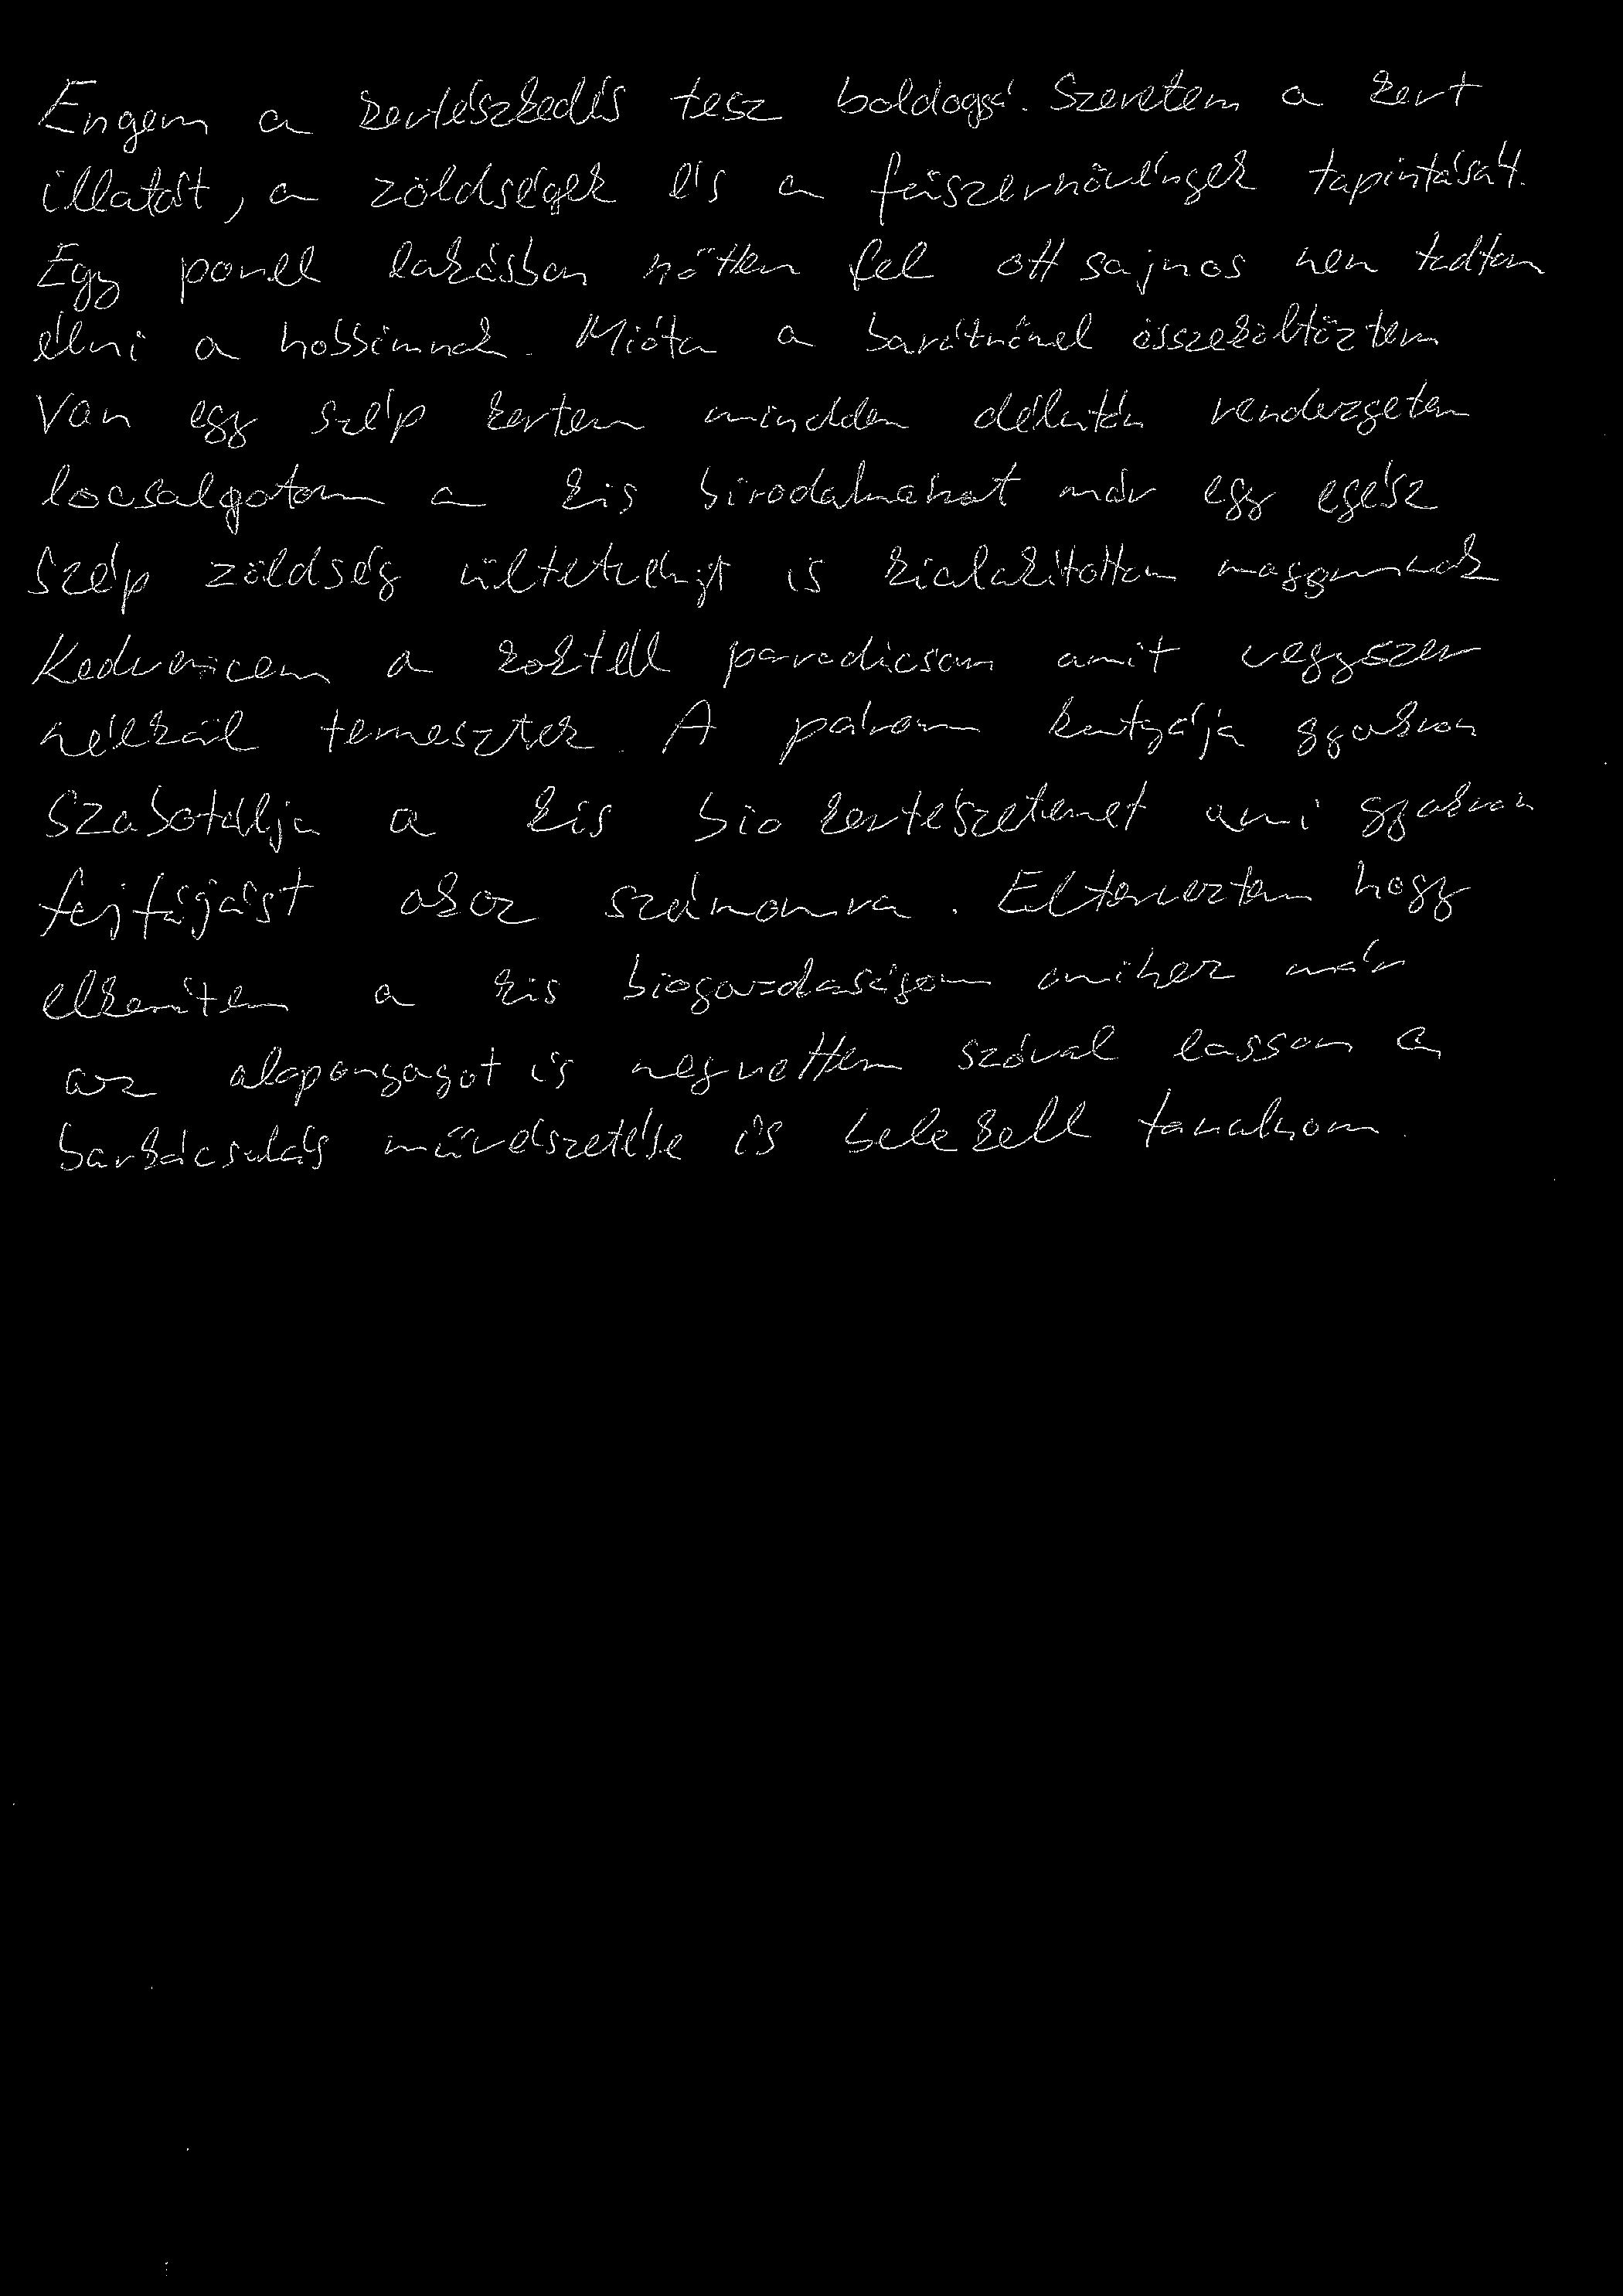 Engem a kertészkedés tesz boldoggá. Szeretem a kert
illatát, a zöldségek és a fűszernövények tapintását.
Egy panel lakásban nőttem fel ott sajnos nem tudtam
élni a hobbimnak. Mióta a barátnőmel összeköltöztem
Van egy szép kertem minden délután rendezgetem
locsolgatom a kis birodalmamat már egy egész
Szép zöldség ültetvényt is kialakítottam magamnak
Kedvencem a koktél paradicsom amit vegyszer
nélkül termesztek. A párom kutyája gyakran
Szabotálja a kis bio kertészetemet ami gyakran
fejfájást okoz számomra. Elterveztem hogy
elkerítem a kis biogazdaságom amihez már
az alapanyagot is megvettem szóval lassan a
barkácsolás művészetébe is bele kell tanulnom.